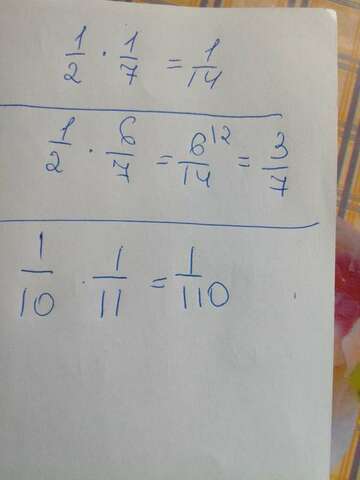 1/2 · 1/7 = 1/14
1/2 · 6/7 = 6/14 |2 = 3/7
1/10 · 1/11 = 1/110